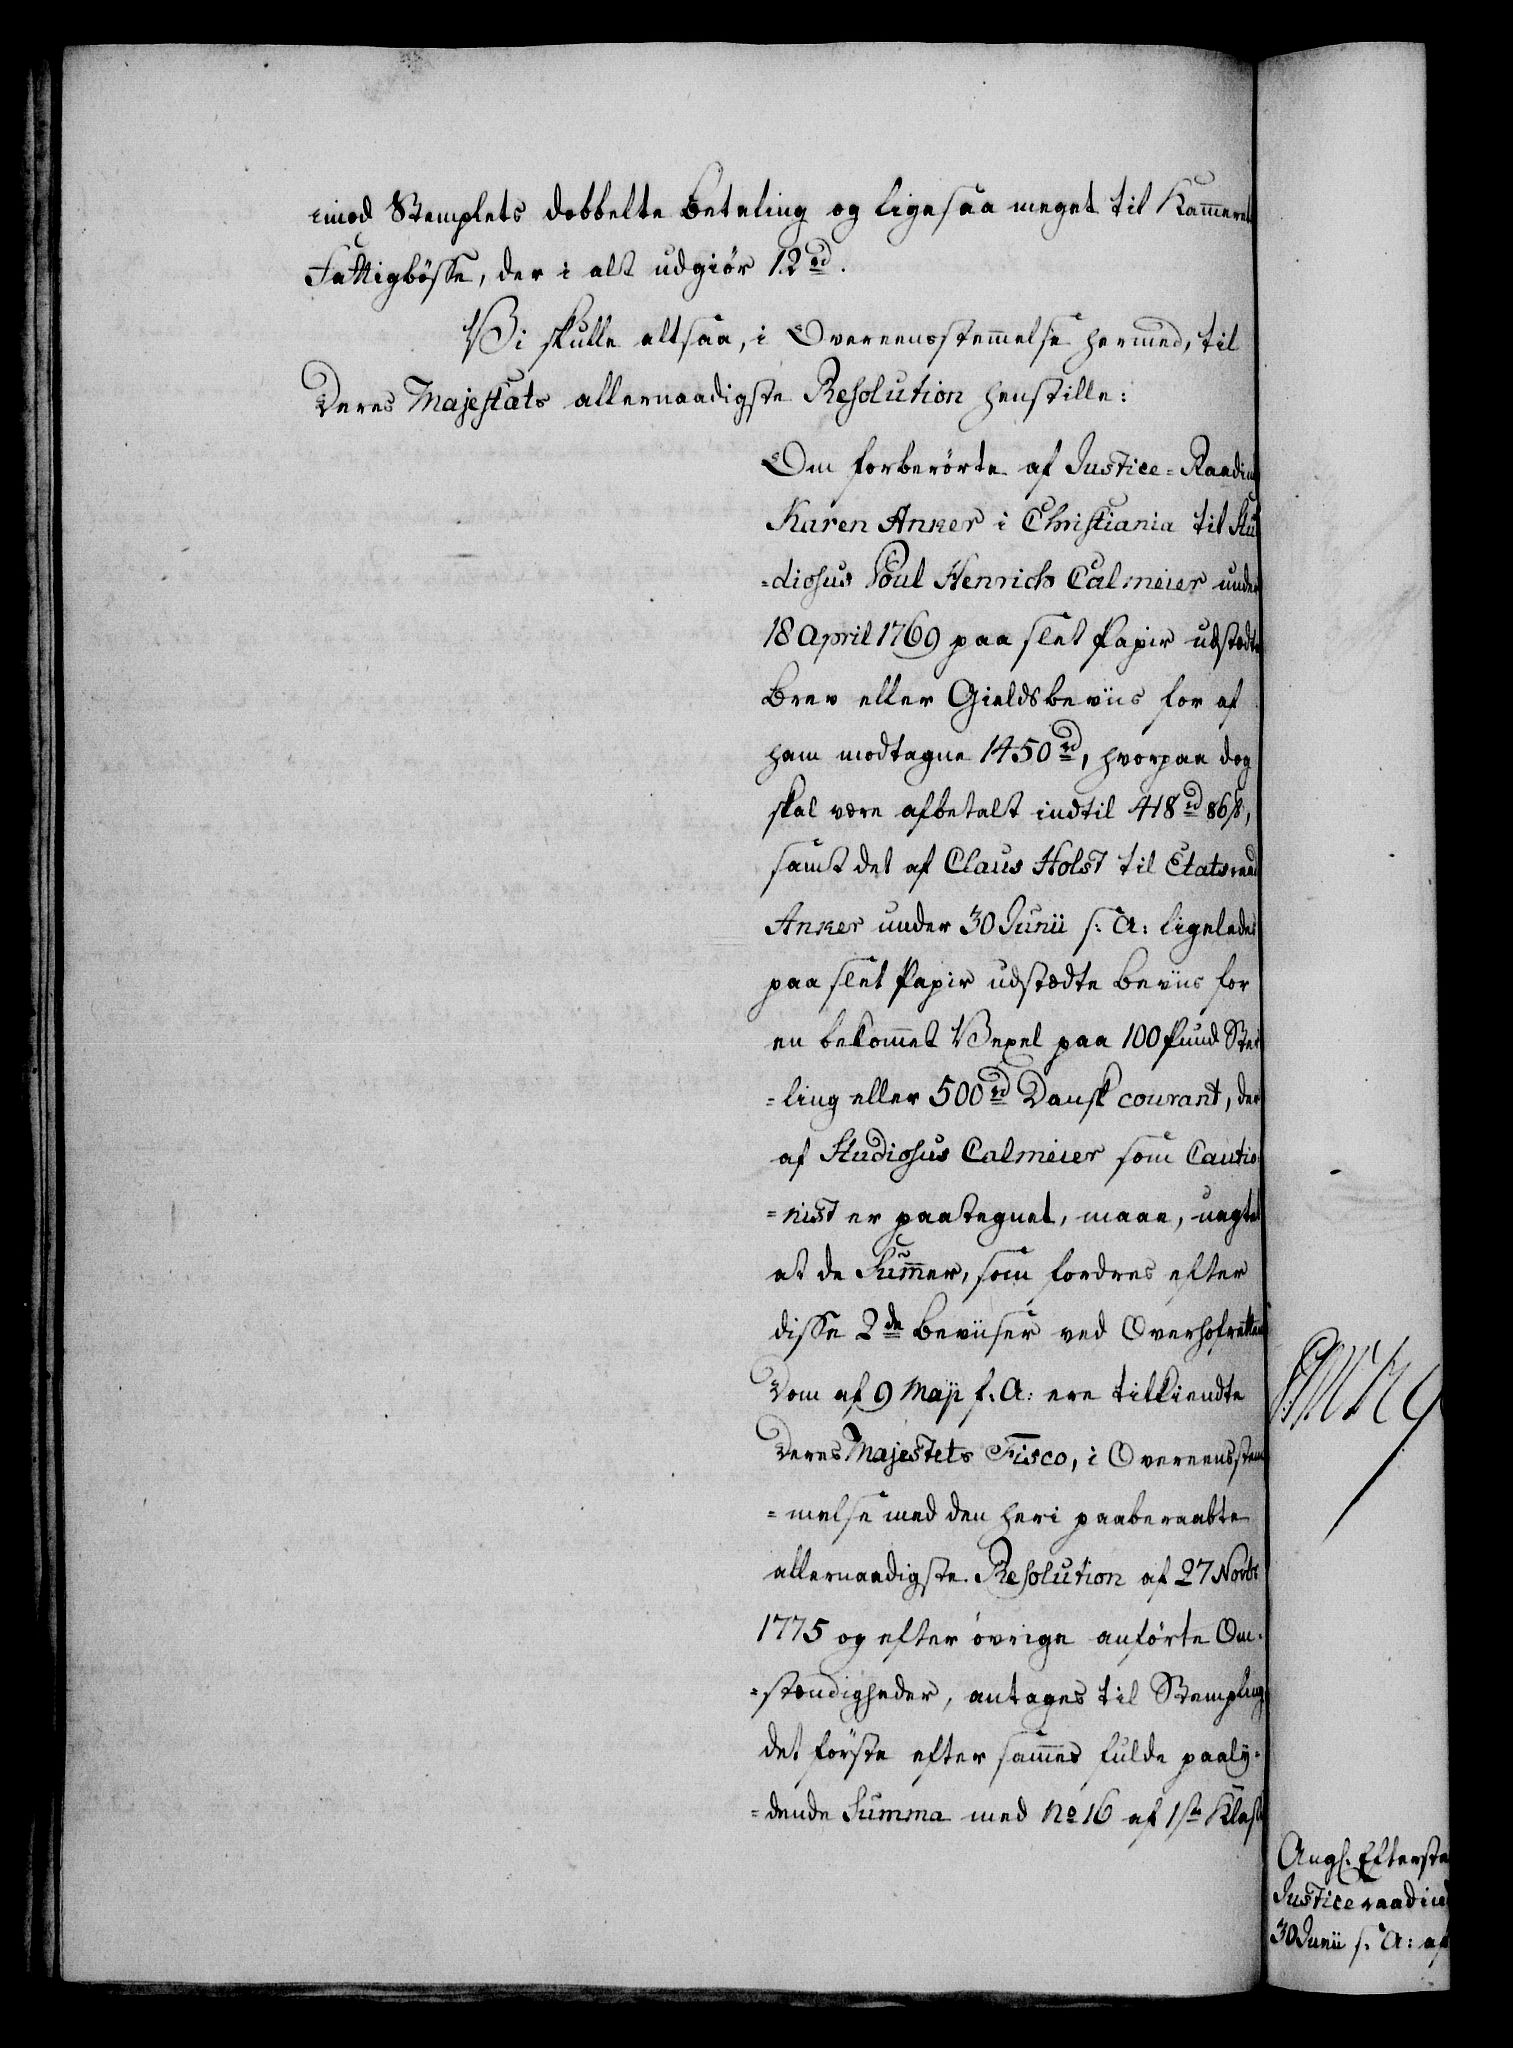 imod Stemplets dobbelte Betaling og ligesaa meget til Kammeret
Fattigbösse, der i alt udgiör 12 rd.
Vi skulle altsaa, i Overeensstemmelse hermed, til
Deres Majestæts allernaadigste Resolution henstille:
Om forberörte af Justice-Raadin
Karen Anker i Christiania til Stu
=diosus Poul Henrich Calmeier under
18 April 1769 paa slet Papir udstædte
Brev eller Gieldsbeviis for af
ham modtagne 1450 rd, hvorpaa dog
skal være afbetalt indtil 418 rd 86 ß,
samt det af Claus Holst til Etatsraad
Anker under 30 Junii s: A: ligeledes
paa slet Papir udstædte Beviis for
en bekommet Vexel paa 100 Pund Ster
=ling eller 500 rd Dansk courant, der
af Studiosus Calmeier som Cautio
=nist er paategnet, maae, uagtet
at de Summer, som fordres efter
disse 2de Beviiser ved Overhofrettens
Dom af 9 Maji f. A: ere tilkiendte
Deres Majestets Fisco, i Overeensstem
=melse med den heri paaberaabte
allernaadigste Resolution af 27 Novbr
1775 og efter övrige anförte Om=
=stændigheder, antages til Stempling
det förste efter sammes fulde paaly=
=dende Summa med No 16 af 1ste Klasse
Angl. Efterste
Justiceraadind
30 Junii s: A: af